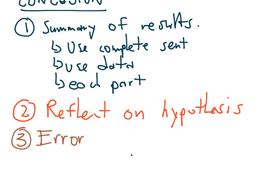 CONCLUSION
① Summary of results.
↳ Use complete sent
↳ use data
↳ each part
② Reflect on hypothesis
③ Error